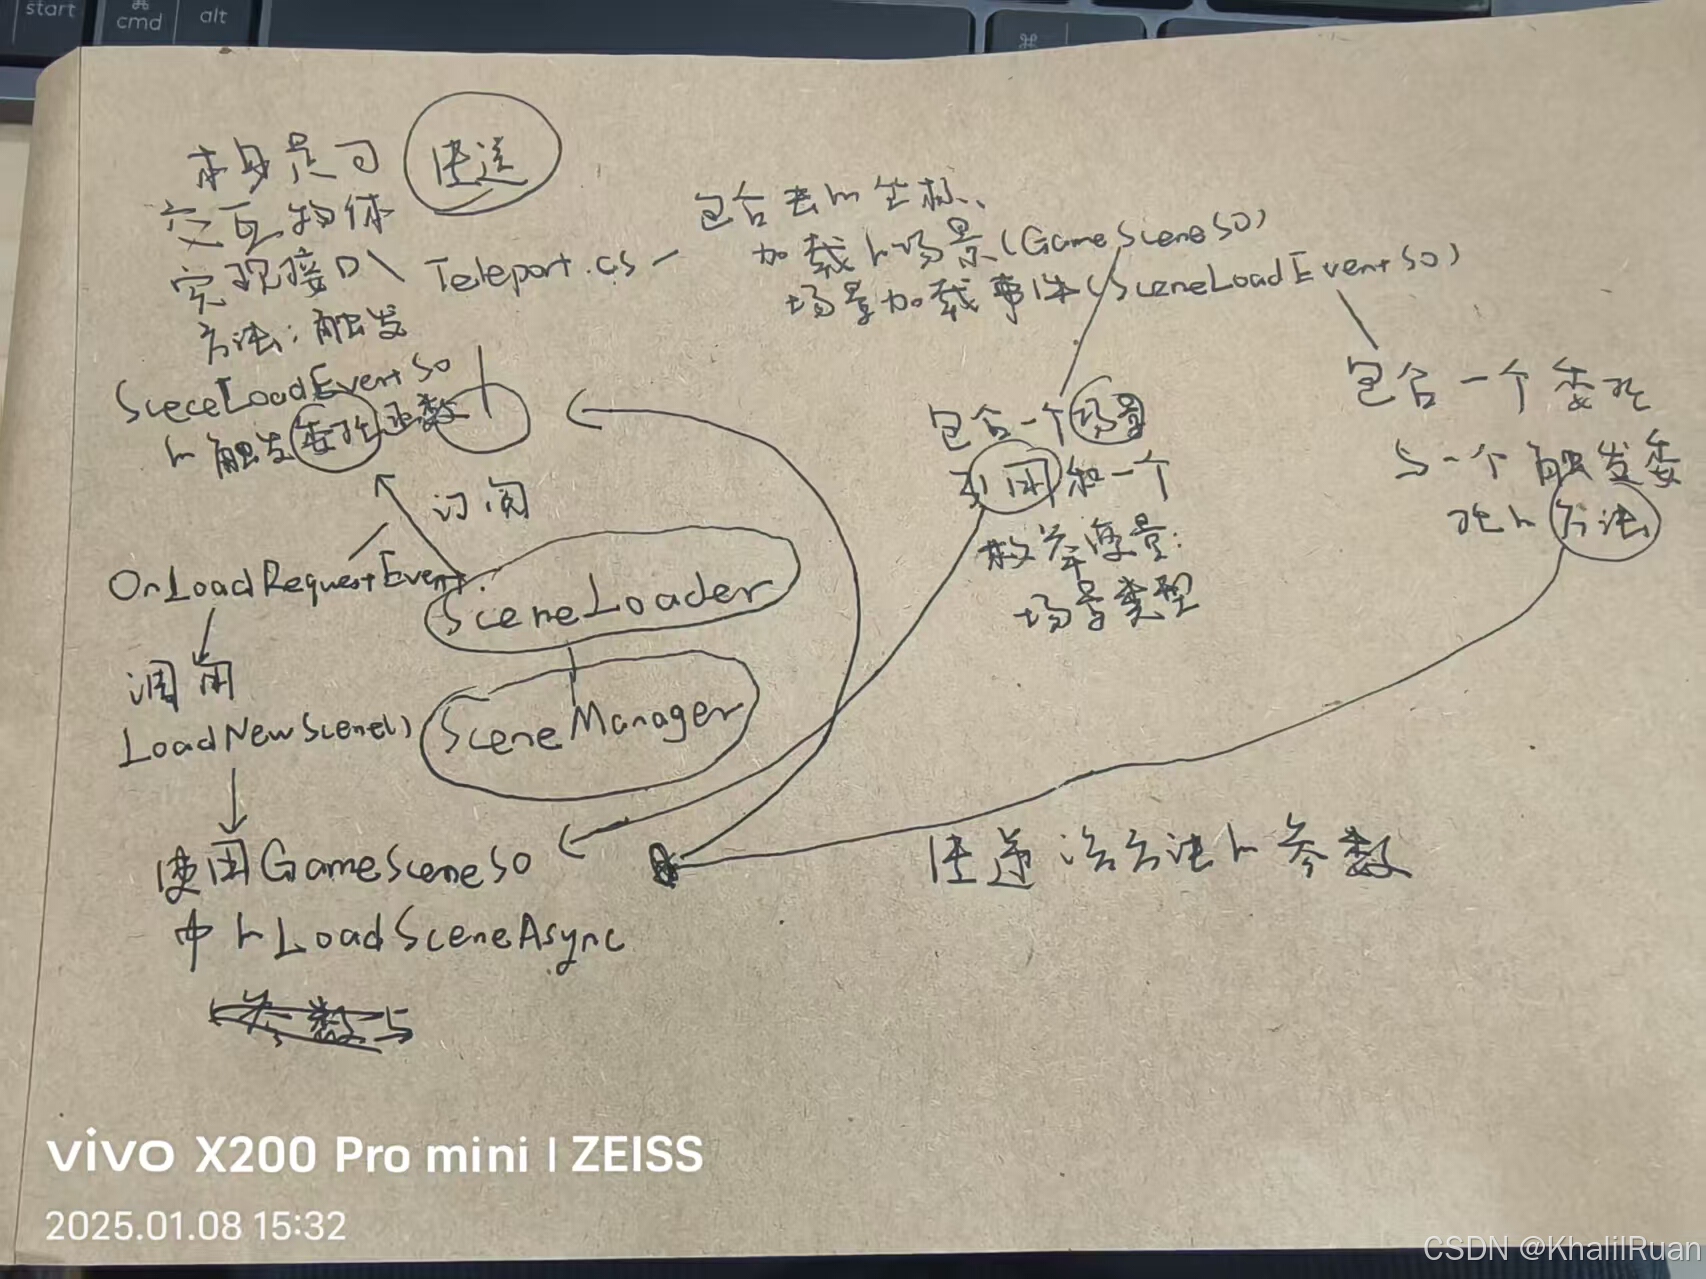 start
⌘
cmd
alt
⌘
传送
本身是可
交互物体
实现接口
方法:触发
SceceLoadEventSO
的触发委托函数
Teleport.cs
包含去的坐标、
加载的场景(GameSceneSO)
场景加载事件(SceneLoadEventSO)
包含一个场景
引用和一个
枚举变量:
场景类型
包含一个委托
与一个触发委
托的方法
订阅
OnLoadRequestEvent
SceneLoader
调用
LoadNewScene()
SceneManager
使用GameSceneSO
中的LoadSceneAsync
传递该方法的参数
参数与
vivo X200 Pro mini | ZEISS
2025.01.08 15:32
CSDN @KhalilRuan